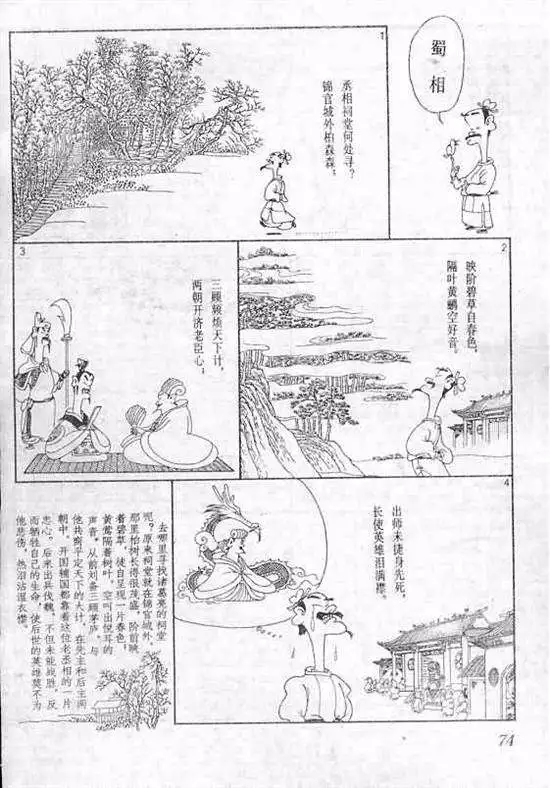 蜀相
1
丞相祠堂何处寻?
锦官城外柏森森;
2
映阶碧草自春色,
隔叶黄鹂空好音。
3
三顾频烦天下计,
两朝开济老臣心;
4
出师未捷身先死,
长使英雄泪满襟。
去哪里寻找诸葛亮的祠堂
呢?原来祠堂就在锦官城外,
那里柏树长得很茂盛,阶前映
着碧草,徒自呈现一片春色,
黄莺隔着树叶,空叫出悦耳的
声音。从前刘备三顾茅庐,与
他共商平定天下的大计,在先主和后主两
朝中,开国辅国都靠着这位老丞相的一片
忠心。后来出兵伐魏,不但未能战胜,反
而牺牲自己的生命,使后世的英雄莫不为
他悲伤,热泪沾湿衣襟。
74